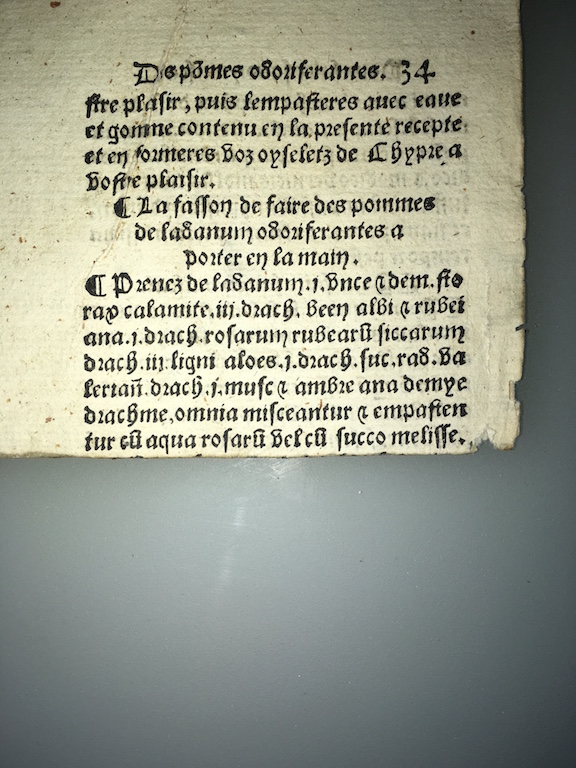 Des põmes odoriferantes. 34
stre plasir, puis lempasteres auec eaue
et gomne contenu en la presente recepte
et en formeres voz oyseletz de Chypre a
vostre plaisir.
¶ La fasson de faire des pommes
de ladanum odoriferantes a
porter en la main.
¶ Prenez de ladanum.j.vnce ⁊ dem. sto
rax calamite.iij.drach. been albi ⁊ rubei
ana.j.drach.rosarum rubearū siccarum
drach.iij.ligni aloes.j.drach.suc.rad.va
leriañ.drach.j.musc ⁊ ambre ana demye
drachme,omnia misceantur ⁊ empasten
tur cū aqua rosarū vel cū succo melisse.